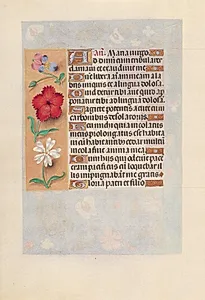 Maria virgo
Ad dominum cum tribularer
clamaui et exaudiuit me
libera animam meam a labi
is iniquis et a lingua dolosa
Quid detur tibi aut quid appo
natur tibi ad linguam dolosam
Sagitte potentis acute cum
carbonibus desolatoriis
Heu michi quia incolatus
meus prolongatus est habita
multum
incola fuit anima mea
Cum hiis qui pacem
eram pacificus cum loquebar il
lis impugnabant me gratis
Gloria patri et filio